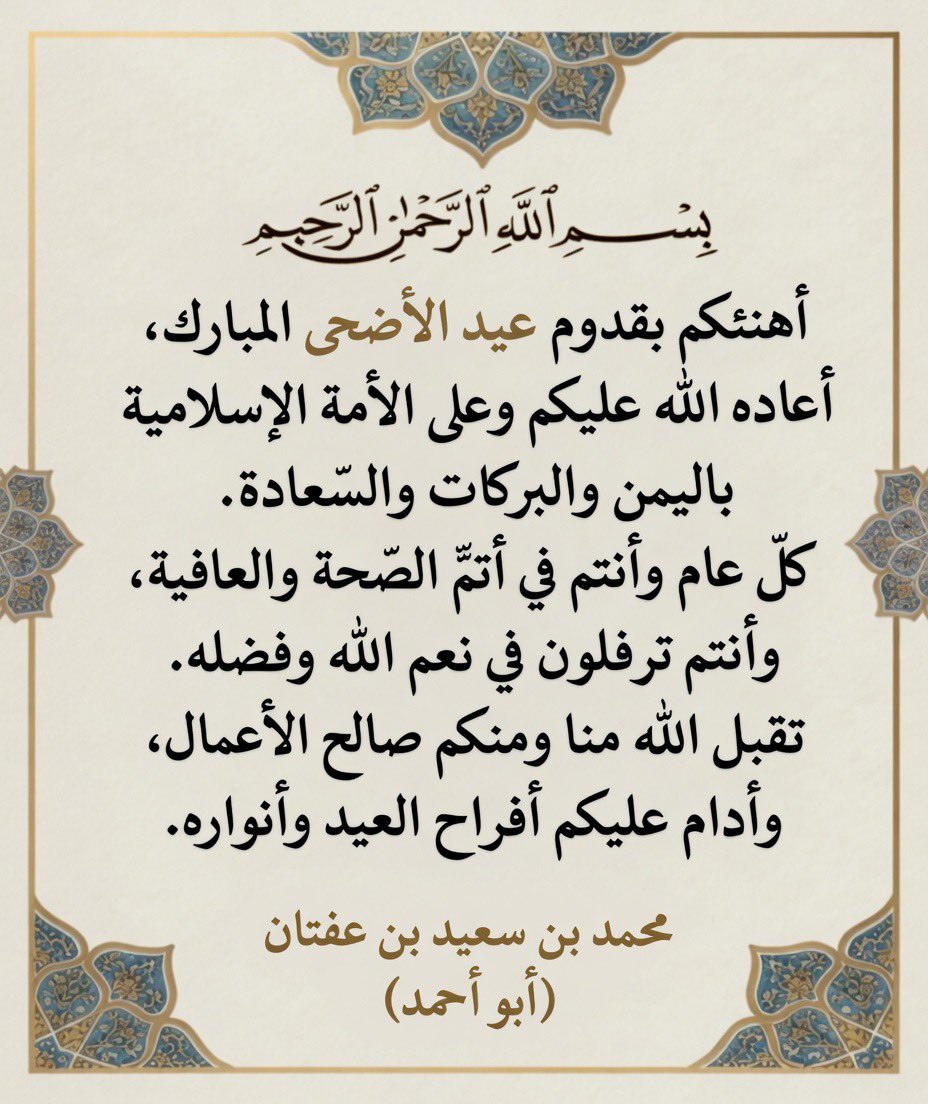 بِسْمِ ٱللَّهِ ٱلرَّحْمَٰنِ ٱلرَّحِيمِ
أهنئكم بقدوم عيد الأضحى المبارك،
أعاده الله عليكم وعلى الأمة الإسلامية
باليمن والبركات والسّعادة.
كلّ عام وأنتم في أتمّ الصّحة والعافية،
وأنتم ترفلون في نعم الله وفضله.
تقبل الله منا ومنكم صالح الأعمال،
وأدام عليكم أفراح العيد وأنواره.
محمد بن سعيد بن عفتان
(أبو أحمد)